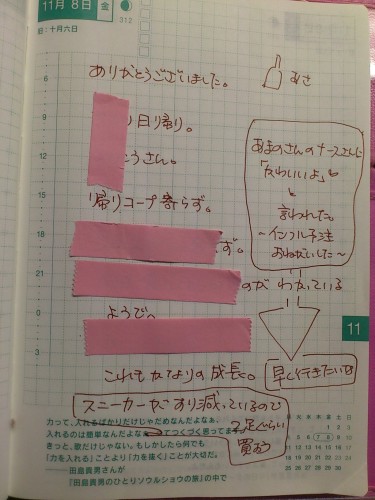 11月 8日 金
312
旧:十月六日
ありがとうございました。
あさ
り日帰り。
うさん。
帰りコープ寄らず。
ず。
のがわかっている
ようで。
これもかなりの成長。
あまのさんのナースさんに
「かわいいよ」と
言われた。
~インフル予注
おねがいした~
早く行きたいな
スニーカーがすり減っているので
2足ぐらい
買おう
6
9
12
15
18
21
0
3
11
力って、入れるばかりだけじゃだめなんだよなぁ。
入れるのは簡単なんだよなぁ
ってつくづく思ってます。
きっと、歌だけじゃない。もしかしたら何でも
「力を入れる」ことより「力を抜く」ことが大切だ。
──田島貴男さんが
『田島貴男のひとりソウルショウの旅』の中で